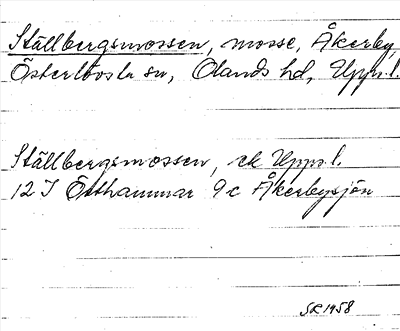 Ställbergsmossen, mosse, Åkerby,
Österlövsta sn, Olands hd, Upps. l.
Ställbergsmossen, ek Upps. l.
12 I Östhammar 9 c Åkerbysjön
SR 1958